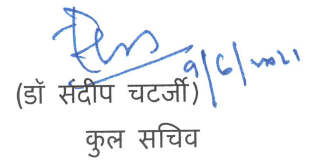 9/6/2021
(डॉ संदीप चटर्जी)
कुल सचिव